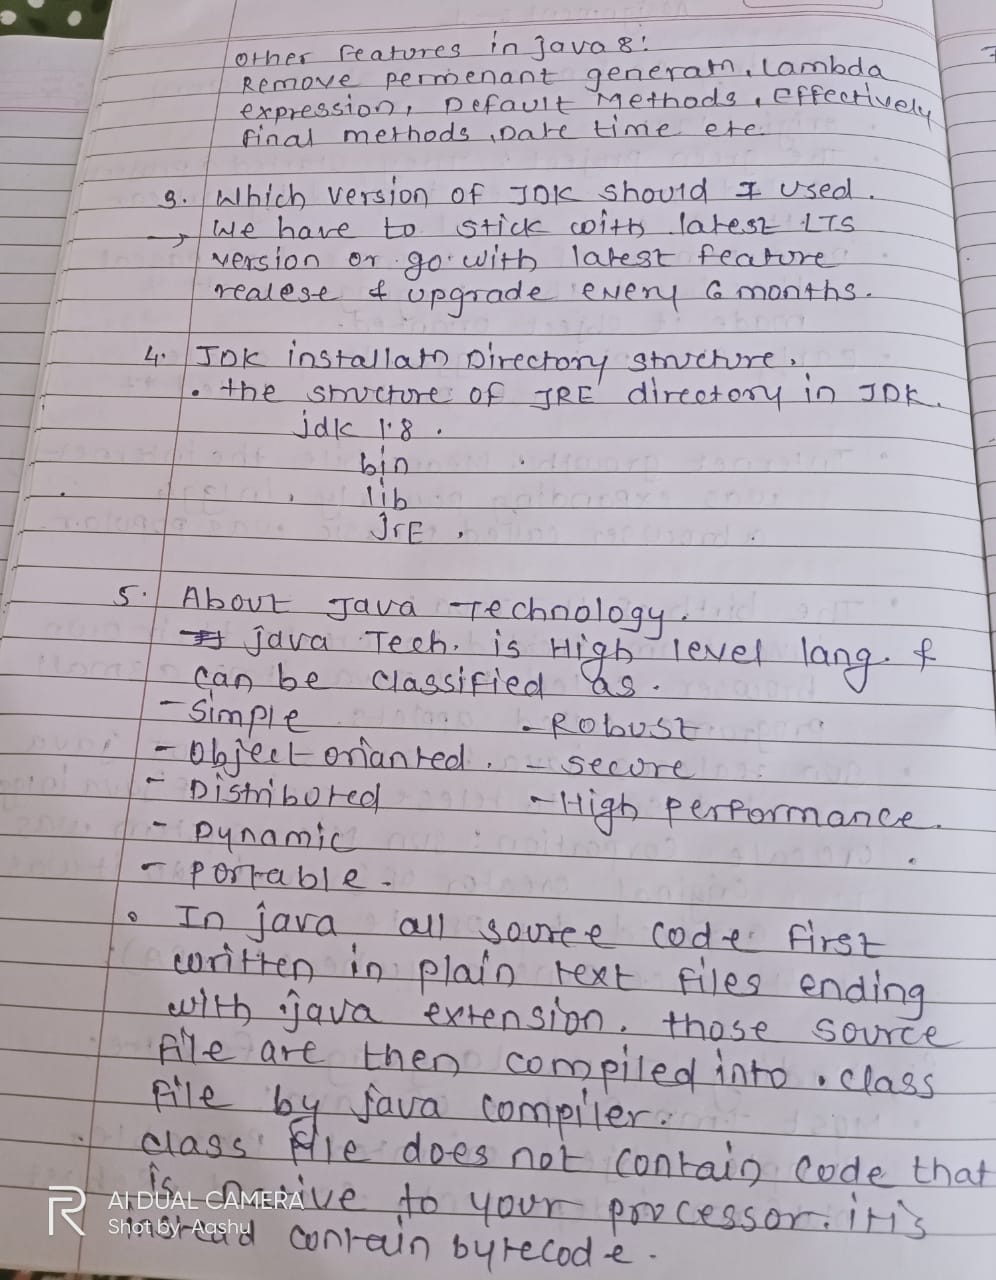 other features in java 8:
Remove permenant generatn, lambda
expression, Default Methods, effectively
final methods, Date time etc.
3. Which version of JDK should I used.
→ We have to stick with latest LTS
version or go with latest feature
realese & upgrade every 6 months.
4. JDK installatn Directory structure.
• the structure of JRE directory in JDK.
jdk 1.8.
bin
lib
JrE.
5. About Java Technology.
java Tech. is High level lang. &
can be classified as.
- Simple - Robust
- Object orianted. - secure
- Distributed - High performance.
- Dynamic
- portable.
• In java all source code first
written in plain text files ending
with .java extension. those source
file are then compiled into .class
file by java compiler.
class file does not contain code that
is native to your processor. it's
instead contain bytecode.
AI DUAL CAMERA
Shot by Aashu